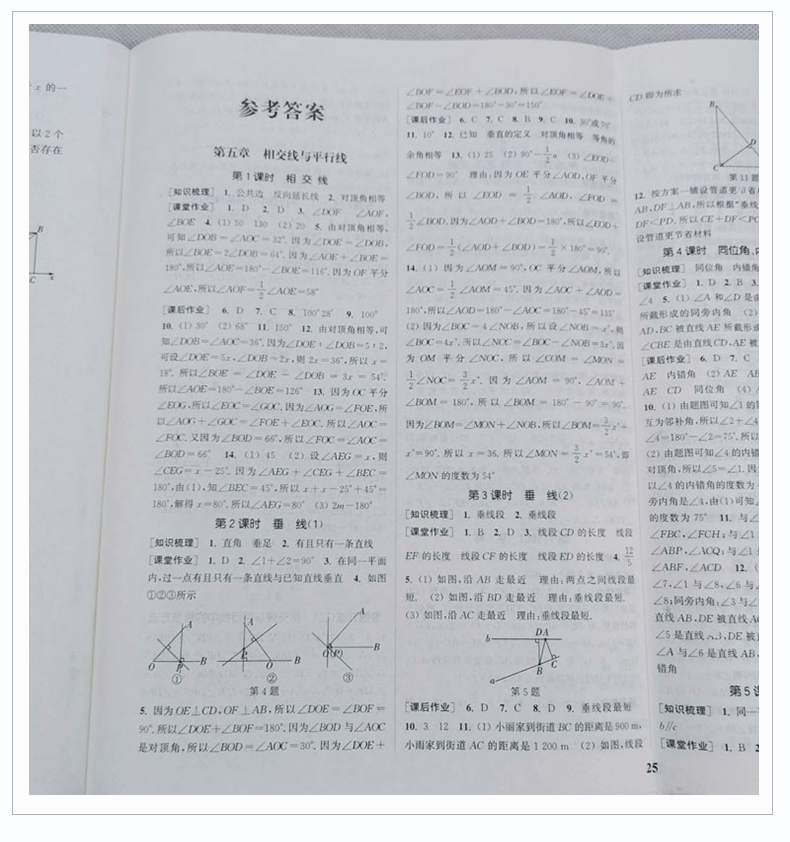 x 的一
以2个
否存在
B
C
x
参考答案
第五章 相交线与平行线
第1课时 相 交 线
[知识梳理] 1. 公共边 反向延长线 2. 对顶角相等
[课堂作业] 1. D 2. D 3. ∠DOF ∠AOF,
∠BOE 4. (1) 50 130 (2) 20 5. 由对顶角相等,
可知∠DOB=∠AOC=32°. 因为∠DOE=∠DOB,
所以∠BOE=2∠DOB=64°. 因为∠AOE+∠BOE=
180°,所以∠AOE=180°-∠BOE=116°. 因为OF平分
∠AOE,所以∠AOF=1/2∠AOE=58°
[课后作业] 6. D 7. C 8. 100°28′ 9. 100°
10. (1) 30° (2) 68° 11. 150° 12. 由对顶角相等,可
知∠DOB=∠AOC=36°. 因为∠DOE:∠DOB=5:2,
可设∠DOE=5x,∠DOB=2x,则2x=36°,所以x=
18°. 所以∠BOE=∠DOE-∠DOB=3x=54°.
所以∠AOE=180°-∠BOE=126° 13. 因为OC平分
∠EOG,所以∠EOC=∠GOC. 因为∠AOG=∠FOE,所
以∠AOG+∠GOC=∠FOE+∠EOC. 所以∠AOC=
∠FOC. 又因为∠BOD=66°,所以∠FOC=∠AOC=
∠BOD=66° 14. (1) 45 (2) 设∠AEG=x,则
∠CEG=x-25°. 因为∠AEG+∠CEG+∠BEC=
180°,由(1),知∠BEC=45°,所以x+x-25°+45°=
180°,解得x=80°. 所以∠AEG=80° (3) 2m-180°
第2课时 垂 线(1)
[知识梳理] 1. 直角 垂足 2. 有且只有一条直线
[课堂作业] 1. D 2. ∠1+∠2=90° 3. 在同一平面
内,过一点有且只有一条直线与已知直线垂直 4. 如图
①②③所示
A
O
P
B
①
A
P
O
B
②
A
O(P)
B
③
第4题
5. 因为OE⊥CD,OF⊥AB,所以∠DOE=∠BOF=
90°. 所以∠DOE+∠BOF=180°. 因为∠BOD与∠AOC
是对顶角,所以∠BOD=∠AOC=30°. 因为∠DOE+
∠BOF=∠EOF+∠BOD,所以∠EOF=∠DOE+
∠BOF-∠BOD=180°-30°=150°
[课后作业] 6. C 7. C 8. B 9. C 10. 30°或
11. 10° 12. 已知 垂直的定义 对顶角相等 等角的
余角相等 13. (1) 25 (2) 90°-1/2α (3) ∠EOD-
∠FOD=90° 理由:因为OE平分∠AOD,OF平分
∠BOD,所以∠EOD=1/2∠AOD,∠FOD=
1/2∠BOD. 因为∠AOD+∠BOD=180°,所以∠EOD+
∠FOD=1/2(∠AOD+∠BOD)=1/2×180°=90°.
14. (1) 因为∠AOM=90°,OC平分∠AOM,所以
∠AOC=1/2∠AOM=45°. 因为∠AOC+∠AOD=
180°,所以∠AOD=180°-∠AOC=180°-45°=135°
(2) 因为∠BOC=4∠NOB,所以设∠NOB=x°,则
∠BOC=4x°. 所以∠NOC=∠BOC-∠NOB=3x°. 因
为OM平分∠NOC,所以∠COM=∠MON=
1/2∠NOC=3/2x°. 因为∠AOM=90°,∠AOM+
∠BOM=180°,所以∠BOM=180°-90°=90°.
因为∠BOM=∠MON+∠NOB,所以∠BOM=3/2x°+
x°=90°. 所以x=36. 所以∠MON=3/2x°=54°,即
∠MON的度数为54°
第3课时 垂 线(2)
[知识梳理] 1. 垂线段 2. 垂线段
[课堂作业] 1. B 2. D 3. 线段CD的长度 线段
EF的长度 线段CF的长度 线段ED的长度 4. 12/5
5. (1) 如图,沿AB走最近 理由:两点之间线段最
短. (2) 如图,沿BD走最近 理由:垂线段最短.
(3) 如图,沿AC走最近 理由:垂线段最短.
b
DA
B
C
a
第5题
[课后作业] 6. D 7. C 8. D 9. 垂线段最短
10. 3 12 11. (1) 小丽家到街道BC的距离是900 m,
小雨家到街道AC的距离是1 200 m (2) 如图,线段
CD即为所求
B
D
C
第11题
12. 按方案一铺设管道更节省
AB,DF⊥AB,所以根据“垂线
DF<PD. 所以CE+DF<PC
设管道更节省材料
第4课时 同位角、内
[知识梳理] 同位角 内错角
[课堂作业] 1. D 2. B 3.
∠4 5. (1) ∠A和∠D是由
所截形成的同旁内角 (2)
AD,BC被直线AE所截形成
∠CBE是由直线CD,AE被
[课后作业] 6. D 7. C
AE 内错角 (2) AE AB
AE CD 同位角 (4)
10. (1) 由题图可知∠1的
互为邻补角,所以∠2+∠4
∠4=180°-∠2=75°. 所以
(2) 由题图可知∠4的内错
对顶角,所以∠5=∠1. 因
以∠4的内错角的度数为
旁内角是∠4,由(1)可知
的度数为75° 11. 与∠
∠FBC,∠FCH;与∠1
∠ABP,∠ACQ;与∠1
∠ABF,∠ACD 12. (1)
∠7,∠1与∠8,∠6与
∠8;同旁内角:∠3与∠
直线AB,DE被直线AC
∠5是直线AB,DE被直
∠A与∠6是直线AB,
错角
第5课
[知识梳理] 1. 同一
b∥c
[课堂作业] 1. B 2
25